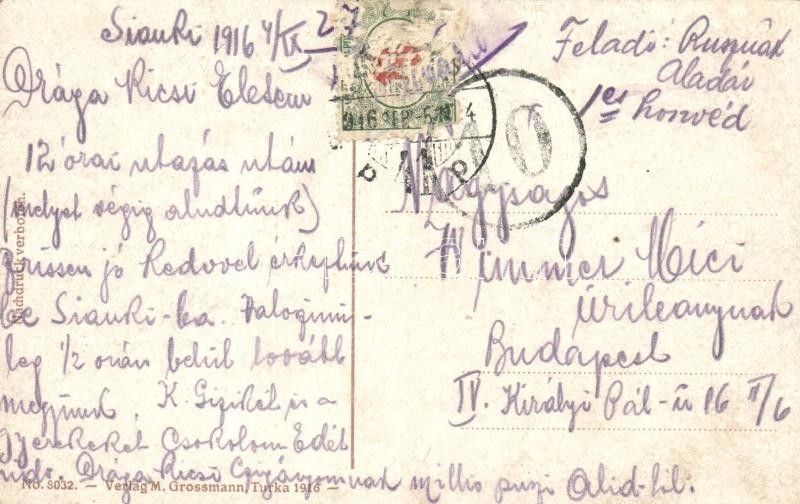 Sianki 1916 4/IX
Drága Kicsi Életem
12 órai utazás után
(melyet végig aludtunk)
frissen jó kedvvel érkeztünk
be Sianki-ba. Valószinü-
leg 1/2 órán belül tovább
megyünk. K. Gizikét is a
gyerekeket csokolom Edét
Drága Kicsi millió puszi
Feladó: Rusznák
Aladár
1es honvéd
Nagyságos
Wimmer Mici
úrileánynak
Budapest
IV. Királyi Pál-ú 16 II/6
27
916 SEP. -5
4
10
Nachdruck verboten.
No. 8032. — Verlag M. Grossmann, Turka 1916 —